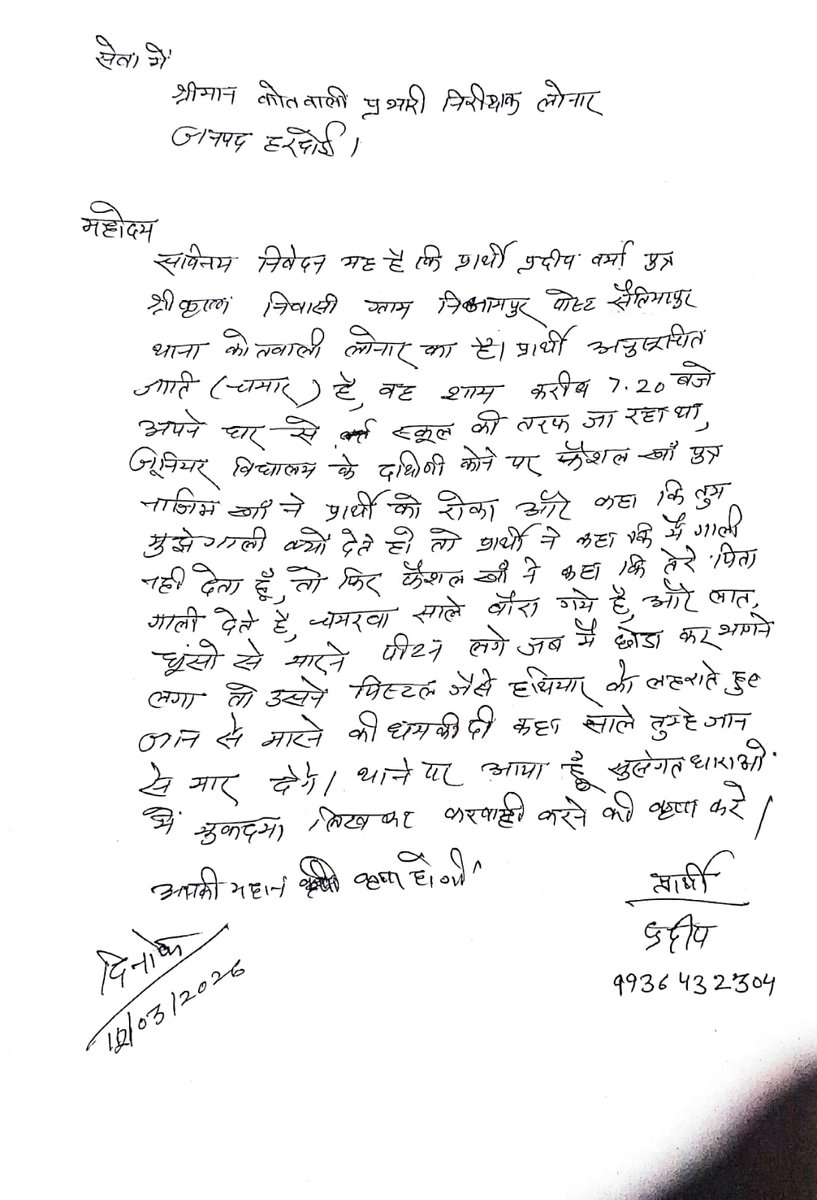 सेवा में
श्रीमान कोतवाली प्रभारी निरीक्षक लोनार
जनपद हरदोई।
महोदय
सविनय निवेदन यह है कि प्रार्थी प्रदीप वर्मा पुत्र
श्रीकृष्ण निवासी ग्राम निजामपुर पोस्ट
थाना कोतवाली लोनार का है। प्रार्थी अनुसूचित
जाति (चमार) है, वह शाम करीब 7.20 बजे
अपने घर से स्कूल की तरफ जा रहा था,
जूनियर विद्यालय के दक्षिणी कोने पर फैशल खाँ पुत्र
नाजिम खाँ ने प्रार्थी को रोका और कहा कि तुम
मुझे गाली क्यों देते हो तो प्रार्थी ने कहा कि मैं गाली
नही देता हूँ, तो फिर फैशल खाँ ने कहा कि तेरे पिता
गाली देते है, चमरवा साले बौरा गये है, और लात,
घूंसो से मारने पीटने लगे जब मैं छोडा कर भागने
लगा तो उसने पिस्टल जैसे हथियार को लहराते हुए
जान से मारने की धमकी दी कहा साले तुम्हे जान
से मार देंगे। थाने पर आया हूँ सुसंगत धाराओं
में मुकदमा लिख कर करवाही करने की कृपा करे।
आपकी महान कृपा होगी
प्रार्थी
प्रदीप
9936432304
दिनांक
/03/2026